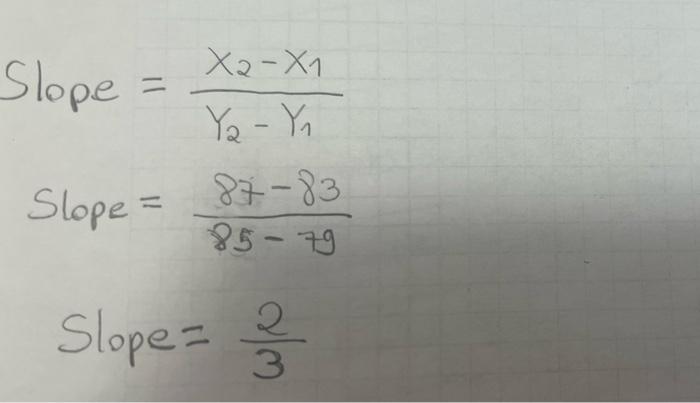 Slope = X2 - X1 / Y2 - Y1
Slope = 87 - 83 / 85 - 79
Slope = 2 / 3